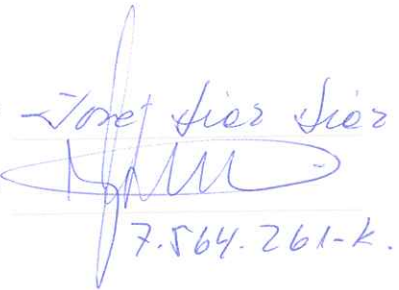 Jose Diaz Diaz
7.564.261-K.